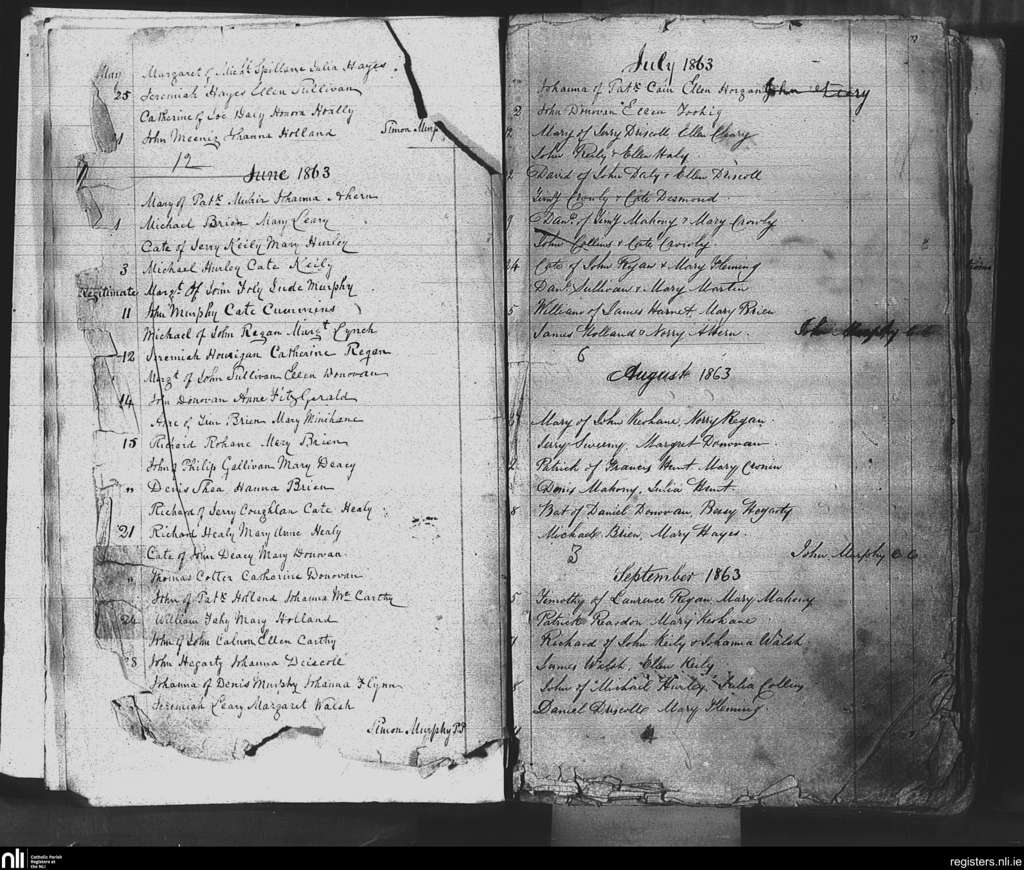 May
Margaret of Michl Spillane Julia Hayes
25 Jeremiah Hayes Ellen Sullivan
Catherine of Joe Daly Honora
John Johanna Holland Simon Murp
12
June 1863
Mary of Patk Johanna Ahern
1 Michael Brien Mary Leary
Cate of Jerry Keily Mary Hurley
3 Michael Hurley Cate Keily
legitimate Margt Of John Foly Jude Murphy
11 Murphy Cate Cummins
Michael of John Regan Margt Lynch
12 Jeremiah Hourigan Catherine Regan
Margt of John Sullivan Ellen Donovan
14 John Donovan Anne FitzGerald
Anne of Brien Mary Minihane
15 Richard Rohane Mary Brien
John of Philip Gallivan Mary Deacy
" Denis Shea Hanna Brien
Richard of Jerry Coughlan Cate Healy
21 Richard Healy Mary Anne Healy
Cate of John Deacy Mary Donovan
" Thomas Cotter Catharine Donovan
John of Patk Holland Johanna McCarthy
William Fahy Mary Holland
John of John Calnon Ellen Carthy
28 John Hegarty Johanna Driscoll
Johanna of Denis Murphy Johanna Flynn
Jeremiah Leary Margaret Walsh
Simon Murphy P.P
July 1863
Johanna of Patk Cain Ellen Horgan
2 John Donovan Ellen
Mary of Jerry Driscoll Ellen Cleary
John Keily & Ellen Haly
2 David of John Daly & Ellen Driscoll
Crowly & Cate Desmond
9 Danl of Mahony & Mary Crowly
John Collins & Cate Crowly
24 Cate of John Ryan & Mary Fleming
Danl Sullivan & Mary Martin
5 William of James Harnet, Mary Brien
James Holland & Norry Ahern John Murphy C.C
6
August 1863
Mary of John Keohane, Norry Regan
Jerry Sweeny, Margret Donovan
2 Patrick of Francis Hunt Mary Cronin
Denis Mahony, Julia Hunt
8 Bat of Daniel Donovan, Bessy Hogarty
Michael Brien, Mary Hayes
3 John Murphy C.C
September 1863
5 Timothy of Laurence Regan Mary Mahony
Patrick Reardon Mary Keohane
Richard of John Keily & Johanna Walsh
James Walsh, Ellen Keily
8 John of Michail Hurley, Julia Collins
Daniel Driscoll Mary Fleming
nli Catholic Parish
Registers at
the NLI
registers.nli.ie